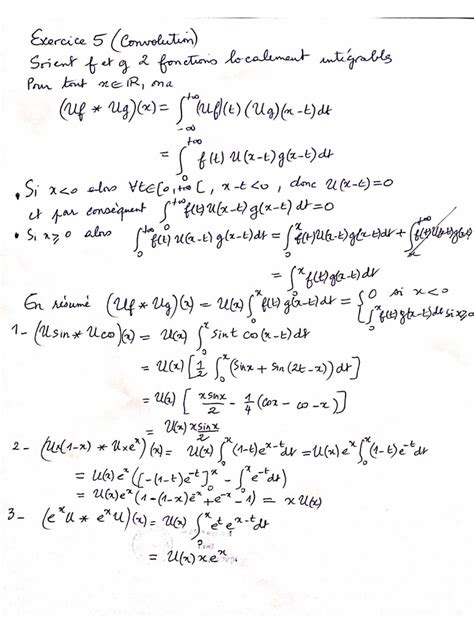 Exercice 5 (Convolution)
Soient f et g 2 fonctions localement intégrables
Pour tout x∈ℝ, on a
(Uf * Ug)(x) = ∫_{-∞}^{+∞} (Uf)(t) (Ug)(x-t)dt
= ∫_0^{+∞} f(t) U(x-t)g(x-t)dt
• Si x<0 alors ∀t∈[0,+∞[, x-t<0, donc U(x-t)=0
et par conséquent ∫_0^{+∞} f(t)U(x-t)g(x-t)dt=0
• Si x⩾0 alors ∫_0^{+∞} f(t)U(x-t)g(x-t)dt = ∫_0^x f(t)U(x-t)g(x-t)dt +
= ∫_0^x f(t)g(x-t)dt
En résumé (Uf * Ug)(x) = U(x)∫_0^x f(t)g(x-t)dt = {0 si x<0
∫_0^x f(t)g(x-t)dt si x⩾0
1- (U sin * U co)(x) = U(x) ∫_0^x sin t co(x-t)dt
= U(x) [1/2 ∫_0^x (sin x + sin(2t-x))dt]
= U(x) [x sin x/2 - 1/4 (co x - co -x)]
= U(x) x sin x/2
2- (U(1-x) * U e^x)(x) = U(x)∫_0^x (1-t)e^{x-t}dt = U(x)e^x ∫_0^x (1-t)e^{-t}dt
= U(x)e^x ([-(1-t)e^{-t}]_0^x - ∫_0^x e^{-t}dt)
= U(x)e^x (1-(1-x)e^{-x} + e^{-x} - 1) = x U(x)
3- (e^x U * e^x U)(x) = U(x) ∫_0^x e^t e^{x-t}dt
= U(x) x e^x